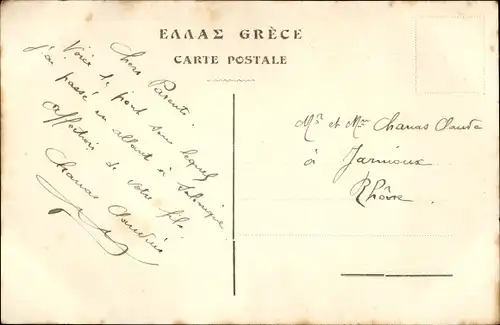 ΕΛΛΑΣ GRÈCE
CARTE POSTALE
Chers Parents
Voici le pont sous lequel
j'ai passé en allant à Salonique
Affection de votre fils
Chanas Claudius
Mr et Mme Chanas Claude
à Jarnioux
Rhône